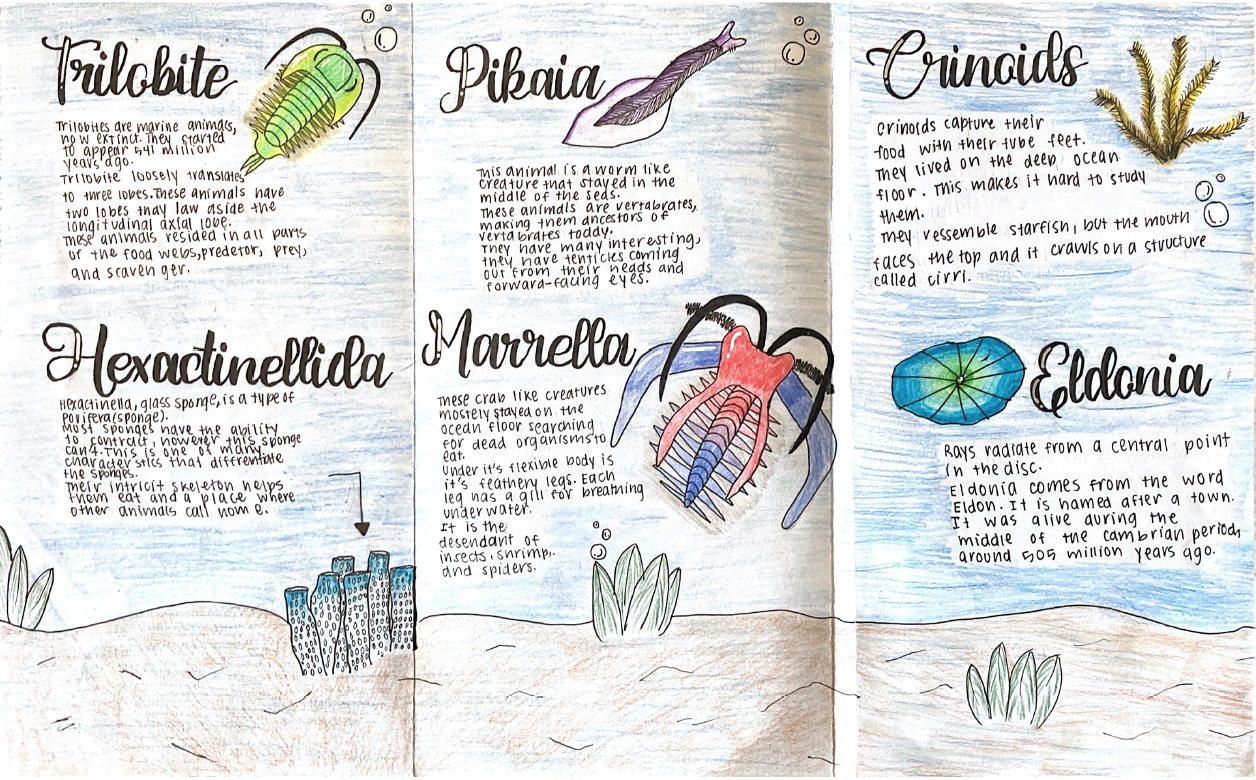 Trilobite
Trilobites are marine animals,
now extinct. They started
to appear 541 million
years ago.
Trilobite loosely translates
to three lobes. These animals have
two lobes thay law aside the
longitudinal axial lobe.
These animals resided in all parts
of the food webs, predetor, prey,
and scavenger.
Hexactinellida
Hexactinella, glass sponge, is a type of
Porifera (sponge).
Most sponges have the ability
to contract, however this sponge
can4. This is one of many
characterstics that differentate
the sponges.
Their intrict skeleton helps
them eat and a place where
other animals call home.
Pikaia
This animal is a worm like
creature that stayed in the
middle of the seas.
These animals are vertabrates,
making them ancestors of
vertabrates today.
They have many interesting,
they have tenticles coming
out from their heads and
forward-facing eyes.
Marrella
These crab like creatures
mostely stayed on the
ocean floor searching
for dead organisms to
eat.
Under it's flexible body is
it's feathery legs. Each
leg has a gill for breathing
underwater.
It is the
desendant of
insects, shrimp,
and spiders.
Crinoids
Crinoids capture their
food with their tube feet.
They lived on the deep ocean
floor. This makes it hard to study
them.
They ressemble starfish, but the mouth
faces the top and it crawls on a structure
called cirri.
Eldonia
Rays radiate from a central point
in the disc.
Eldonia comes from the word
Eldon. It is named after a town.
It was alive during the
middle of the cambrian period,
around 505 million years ago.